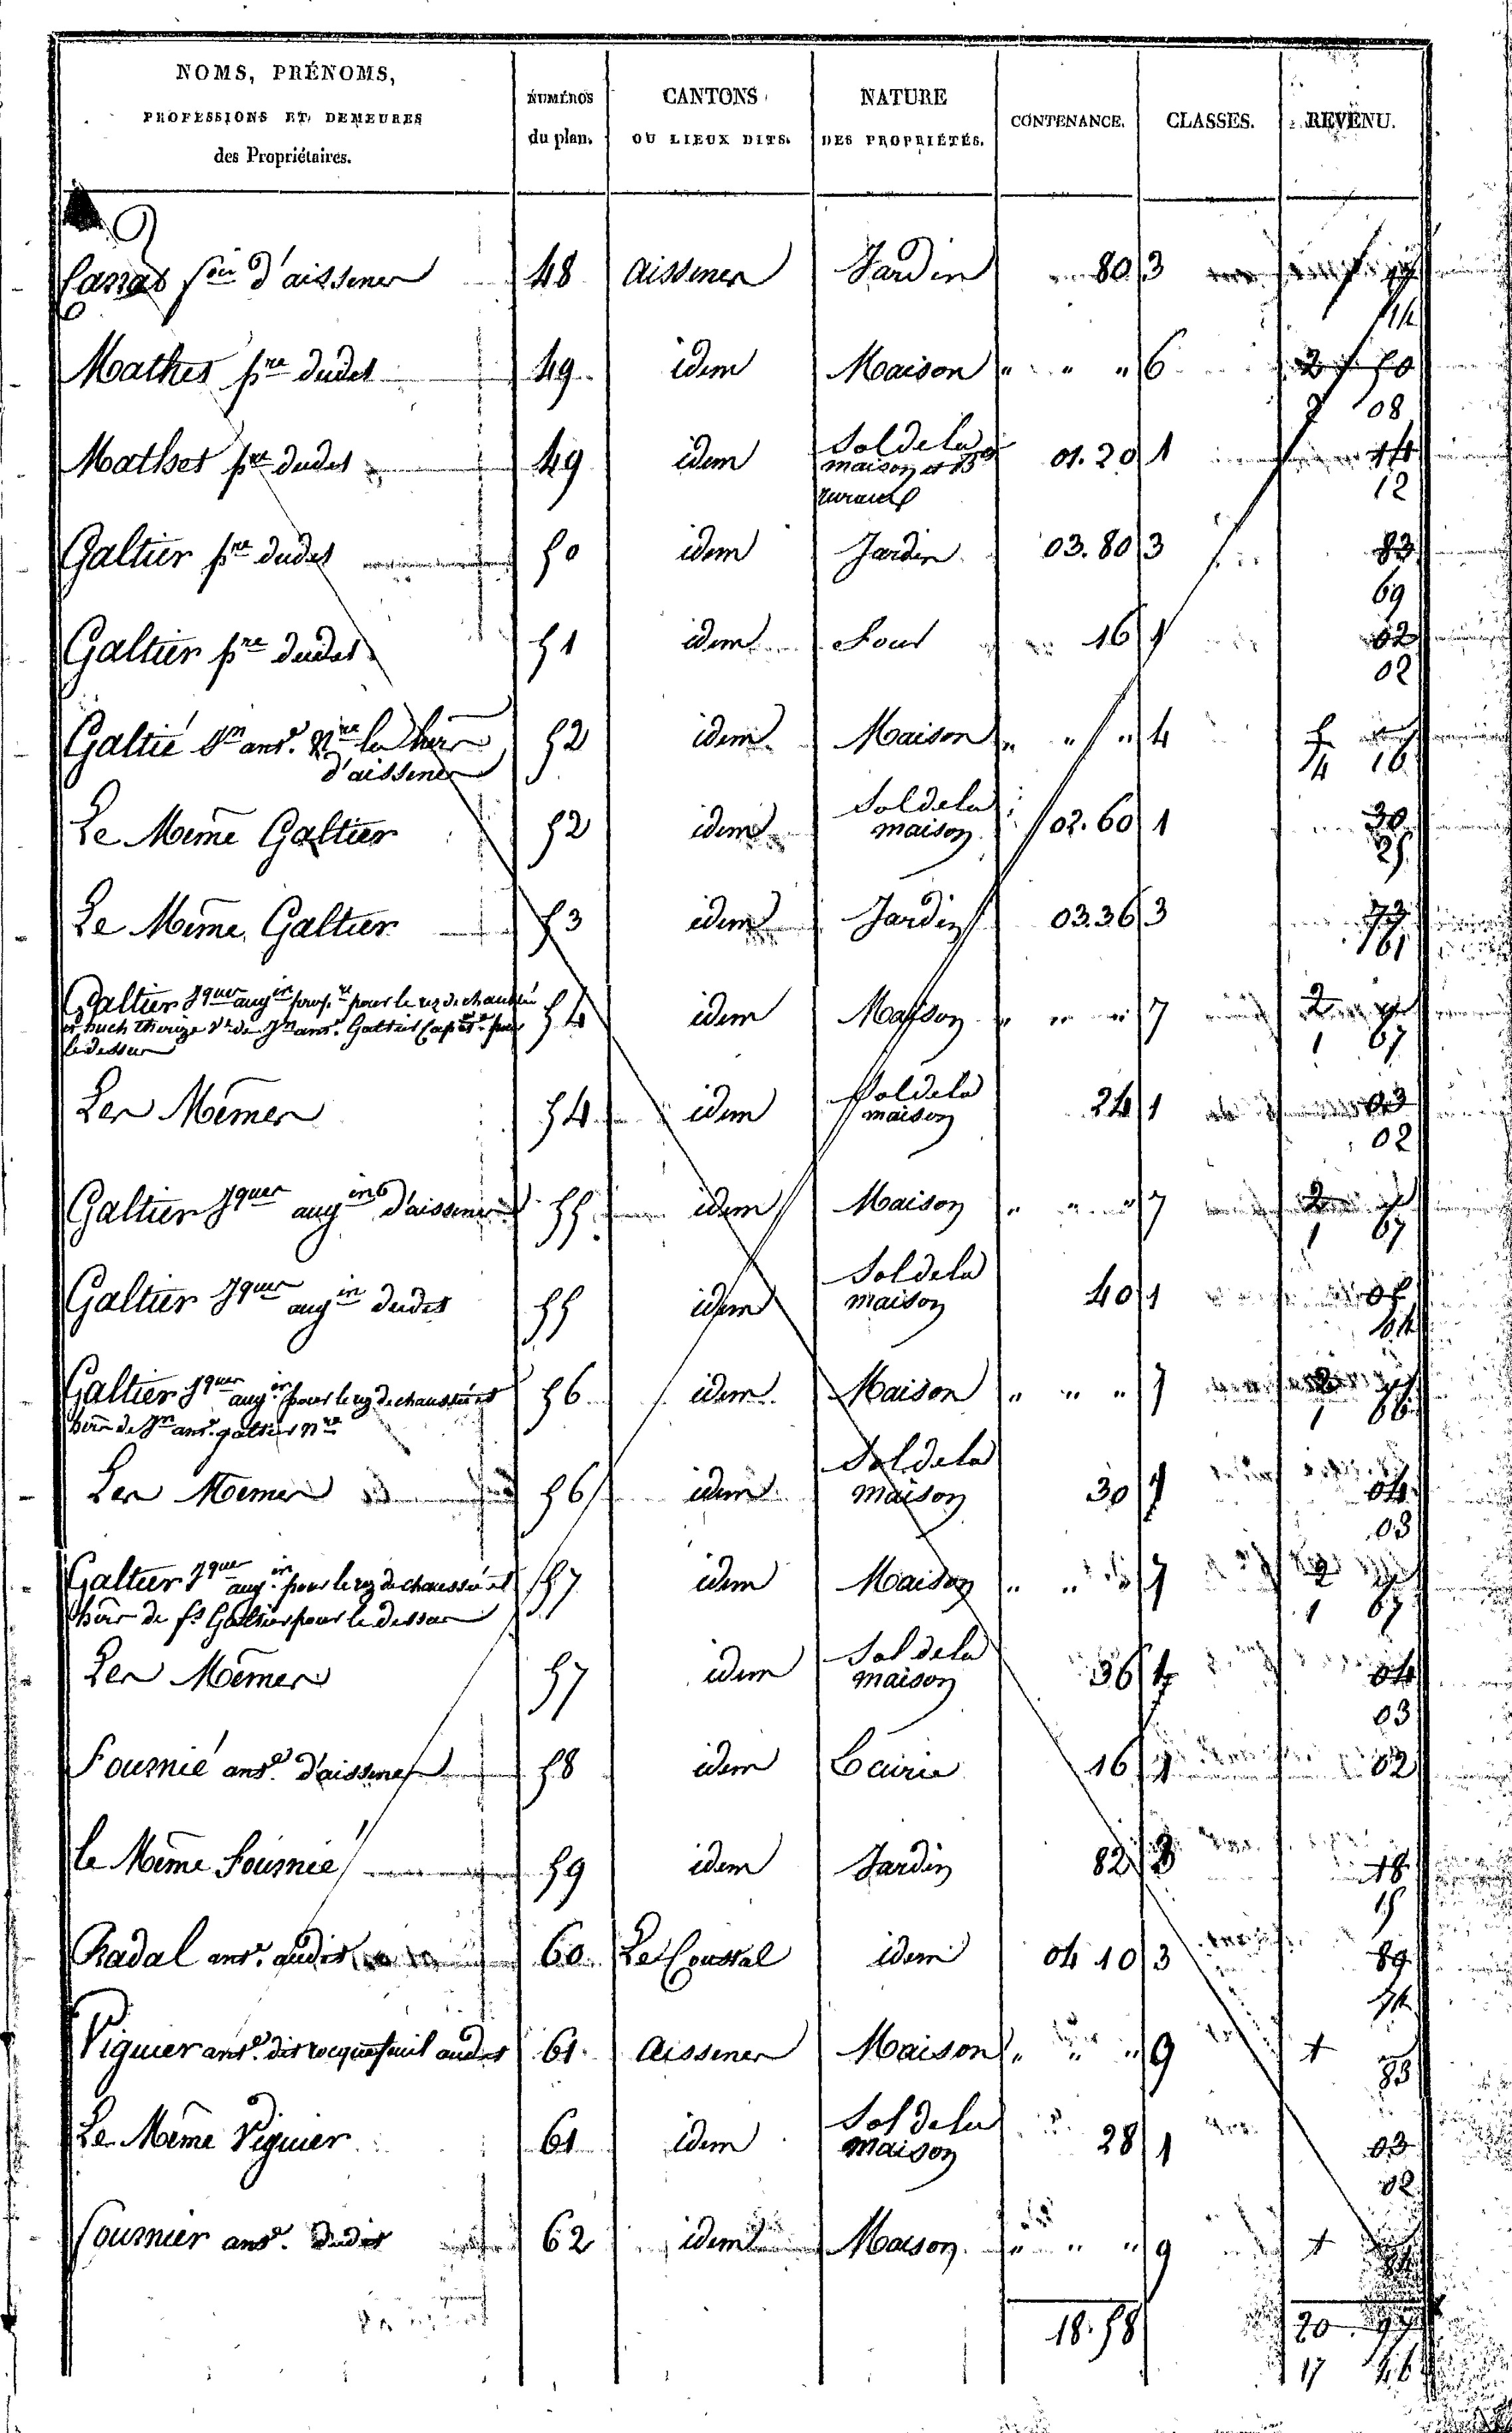 NOMS, PRÉNOMS, PROFESSIONS ET DEMEURES des Propriétaires. NUMÉROS du plan. CANTONS OU LIEUX DITS. NATURE DES PROPRIÉTÉS. CONTENANCE. CLASSES. REVENU.
d'aissenes 48 aissenes Jardin 80 3
14
Mathes pre dudet 49 idem Maison " " " 6 2 50
2 08
Mathet pre dudet 49 idem Sol de la maison et Bt ruraux 01.20 1 14
12
Galtier pre dudet 50 idem Jardin 03.80 3 83
69
Galtier pre dudet 51 idem Four 16 1 02
02
Galtié Jn ant. Nre d'aissenes 52 idem Maison " " " 4 5
4 16
Le Même Galtier 52 idem Sol de la maison 02.60 1 30
25
Le Même Galtier 53 idem Jardin 03.36 3 73
61
Galtier Jques augin pour le rez de chaussée 54 idem Maison " " " 7 2
le dessus 1 67
Les Mêmes 54 idem Sol de la maison 24 1 03
02
Galtier Jques augin d'aissenes 55 idem Maison " " " 7 2
1 67
Galtier Jques augin dudet 55 idem Sol de la maison 40 1 05
04
Galtier Jques augin pour le rez de chaussée et 56 idem Maison " " " 7 2
de Jn ant. galtier nre 1 66
Les Mêmes 56 idem Sol de la maison 30 1 04
03
Galtier Jques augin pour le rez de chaussée et 57 idem Maison " " " 7 2
de fs Galtier pour le dessus 1 67
Les Mêmes 57 idem Sol de la maison 36 1 04
03
Fournié ant. d'aissenes 58 idem Ecurie 16 1 02
le Même Fournié 59 idem Jardin 82 3 18
15
Radal ant. audit 60 Le Coustal idem 04 10 3 89
74
Viguier ant. dit rocquefeuil audet 61 aissenes Maison " " " 9 1
83
Le Même Viguier 61 idem Sol de la maison 28 1 03
02
Fournier ant. dudit 62 idem Maison " " " 9 1
84
18.58 20 97
17 46